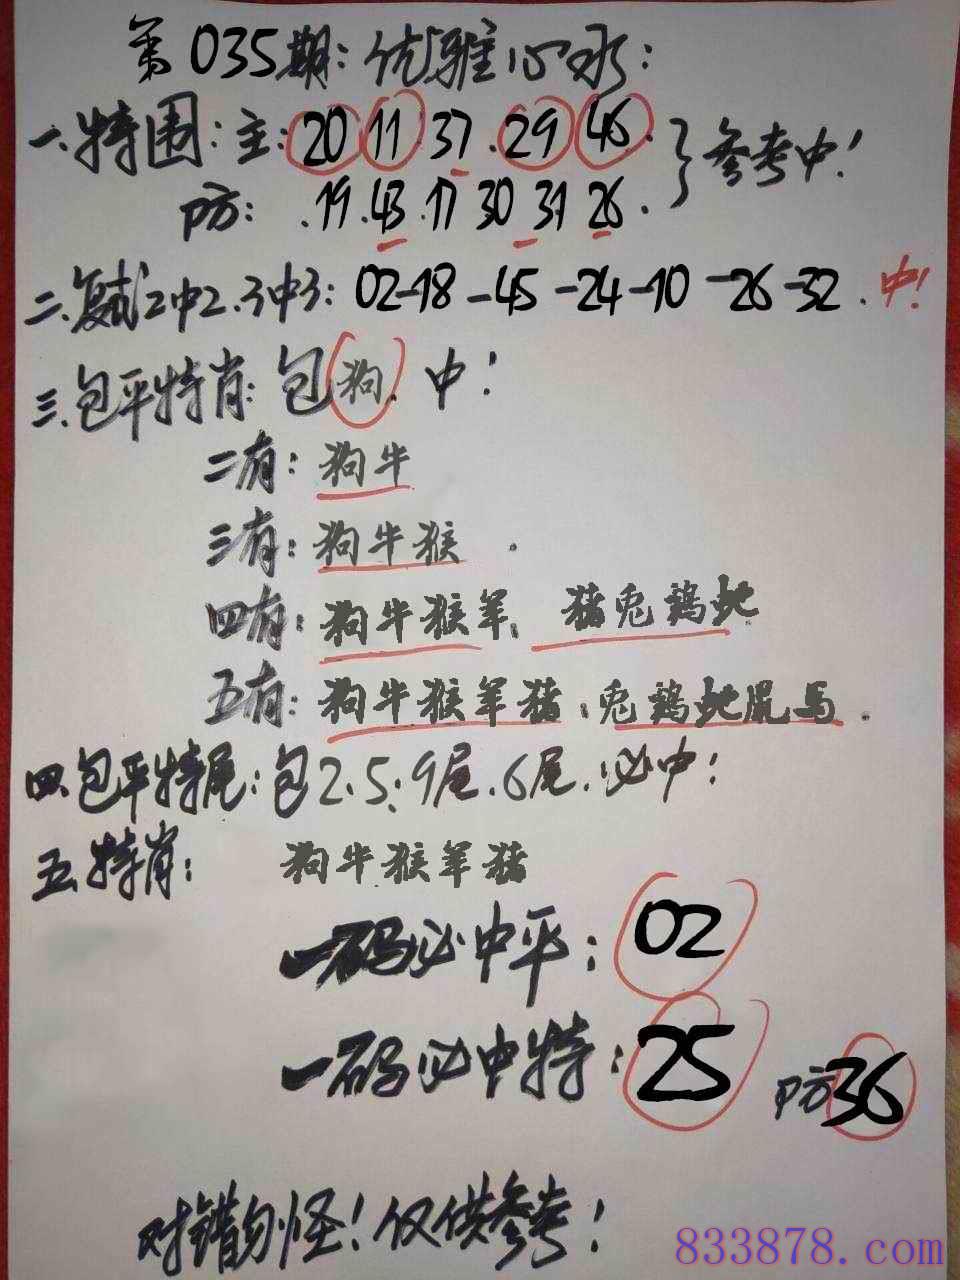 第035期：优雅心水：
一.特围：主：20 11 37.29 46.}参考中！
防：.19.43.17 30 37 26.
二.复试2中2.3中3：02-18-45-24-10-26-32.中！
三.包平特肖：包狗.中！
二有：狗牛
三有：狗牛猴.
四有：狗牛猴羊.猪兔鸡蛇
五有：狗牛猴羊猪：兔鸡蛇鼠马.
四.包平特尾：包2.5：9尾.6尾.必中！
五.特肖：狗牛猴羊猪
一码必中平：02
一码必中特：25 防36
对错勿怪！仅供参考！
833878.com